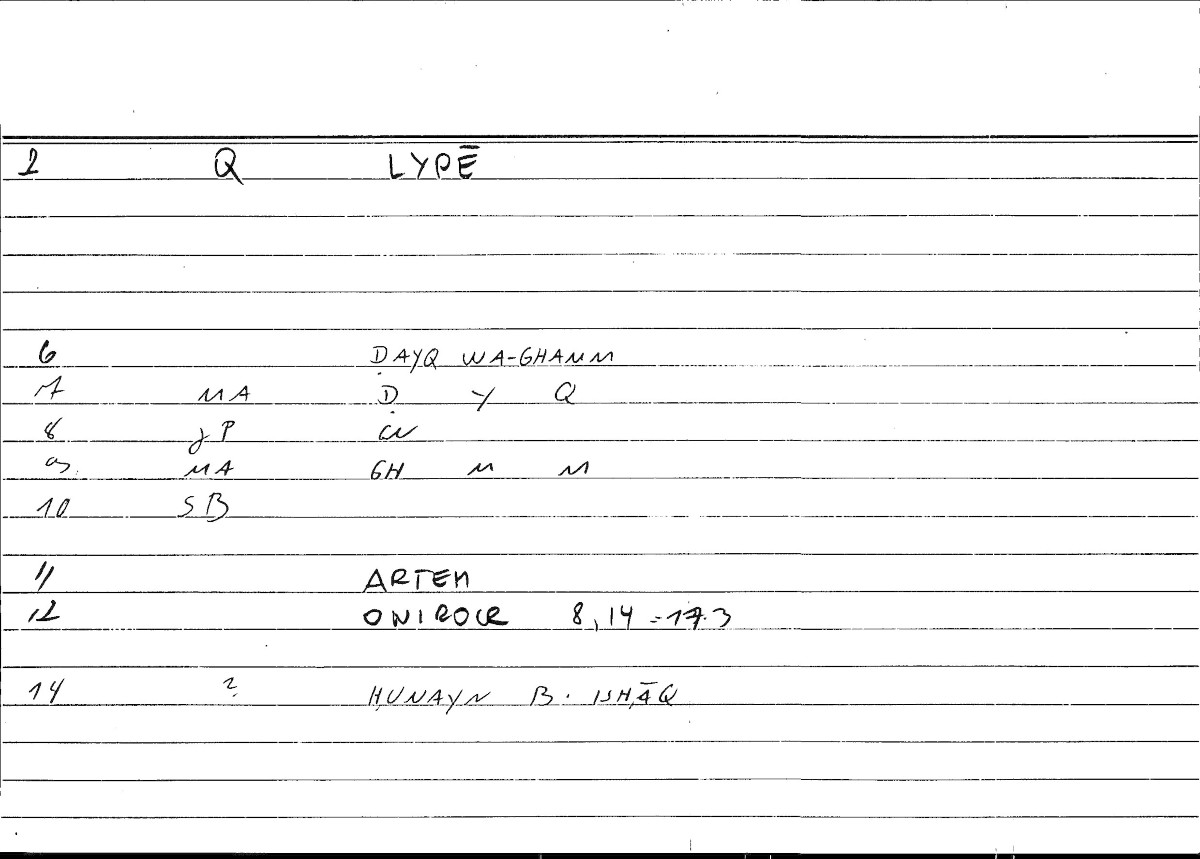 2 Q LYPĒ
6 ḌAYQ WA-GHAMM
7 MA Ḍ Y Q
8 JP W
9 MA GH M M
10 SB
11 ARTEM
12 ONIROCR 8,14 = 17.3
14 ? ḤUNAYN B. ISḤĀQ